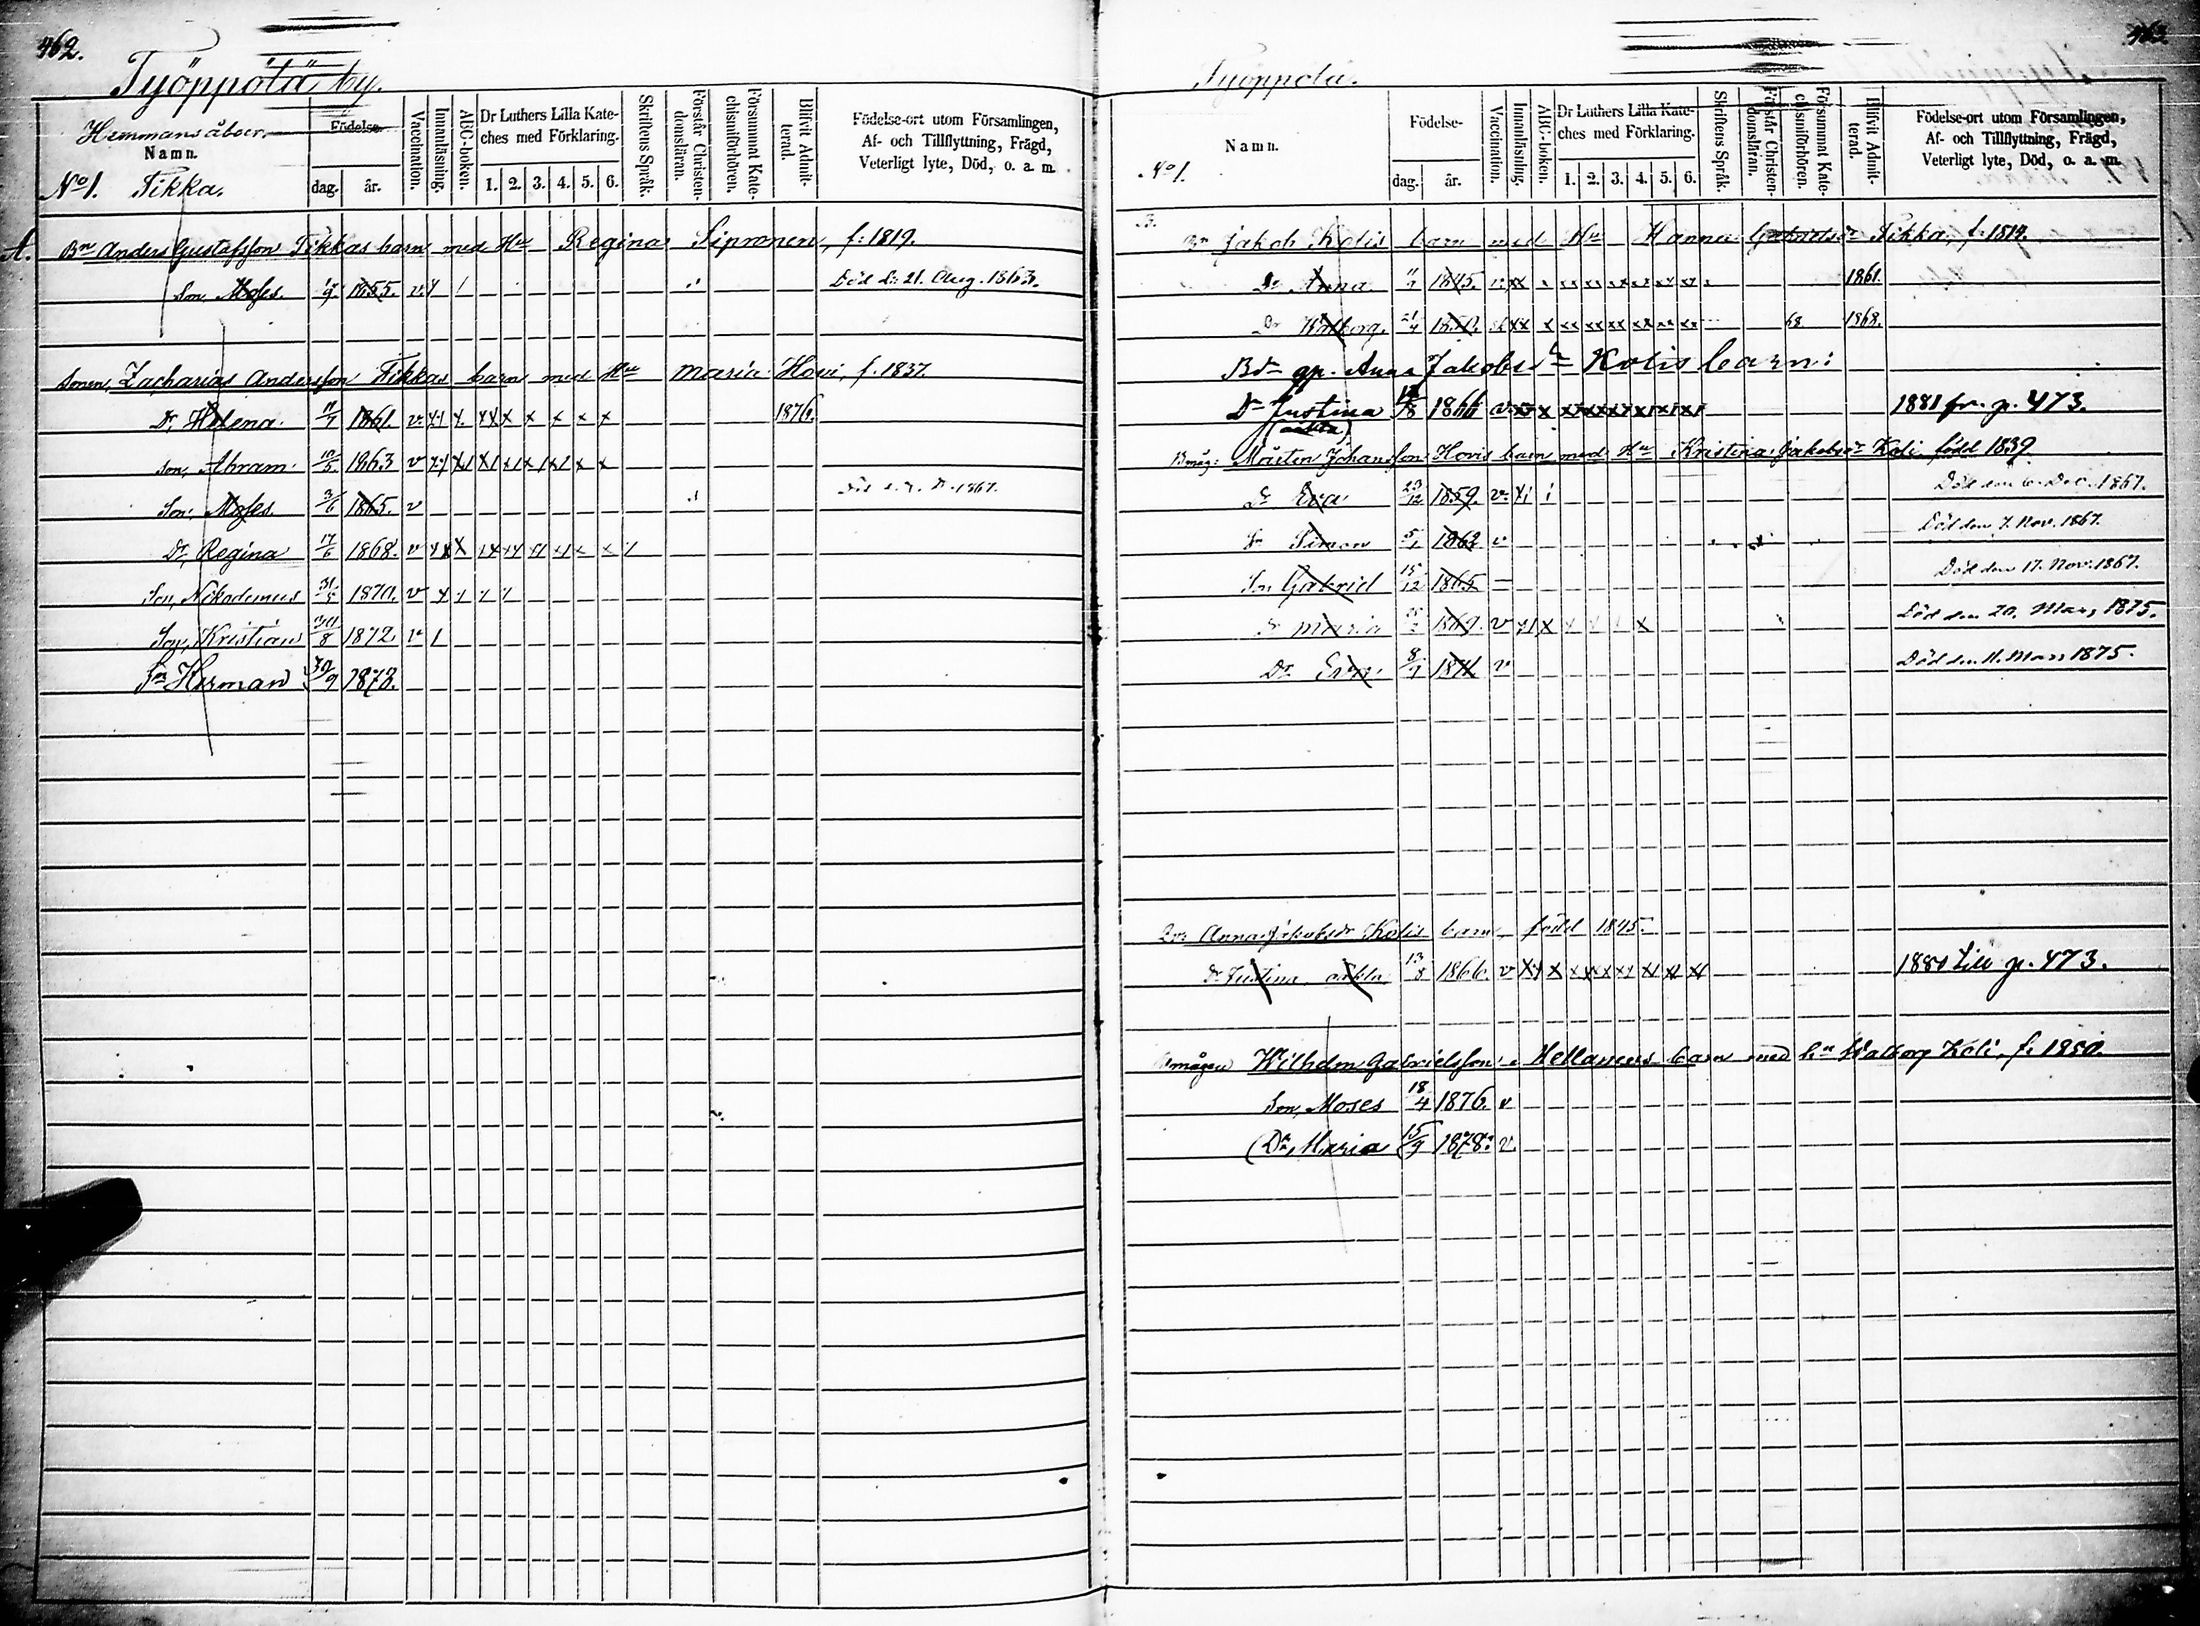 462.
Työppölä by.
Hemmansåboer.
Namn.
Födelse-
dag. år.
Vaccination.
Innanläsning.
ABC-boken.
Dr Luthers Lilla Kate-
ches med Förklaring.
1. 2. 3. 4. 5. 6.
Skriftens Språk.
Förstår Christen-
domsläran.
Försummat Kate-
chismiförhören.
Blifvit Admit-
terad.
Födelse-ort utom Församlingen,
Af- och Tillflyttning, Frägd,
Veterligt lyte, Död, o. a. m.
No 1. Tikka.
A. Bn Anders Gustafsson Tikkas barn med Hu Regina Sipronen, f. 1819.
Son, Moses. 1855. v. Död d. 21. Aug. 1863.
Sonen, Zacharias Andersson Tikkas barn med Hu Maria Hovi, f. 1837.
Dr, Helena. 1861. v. x x x x x x x x 1876.
Son, Abram. 10/5 1863 v
Son, Moses. 3/6 1865. v 1867.
Dr, Regina 17/6 1868. v
Son, Nikodemus 31/5 1870. v
Son, Kristian 30/8 1872. v
Sn Herman 30/9 1873.
463
Työppölä.
Namn.
No 1.
Födelse-
dag. år.
Vaccination.
Innanläsning.
ABC-boken.
Dr Luthers Lilla Kate-
ches med Förklaring.
1. 2. 3. 4. 5. 6.
Skriftens Språk.
Förstår Christen-
domsläran.
Försummat Kate-
chismiförhören.
Blifvit Admit-
terad.
Födelse-ort utom Församlingen,
Af- och Tillflyttning, Frägd,
Veterligt lyte, Död, o. a. m.
B.
Bn Jakob Kolis barn med Hu Hanna Gabrielsdr Tikka, f. 1814.
Dr Anna 1845. 1861.
Dr Walborg. 21/4 1850. 68 1868.
Bdr gp. Anna Jakobsdr Kolis barn:
Dr Justina 13/8 1866 v 1881 fr. p. 473.
(oäkta)
Bmåg: Mårten Johansson Hovis barn med Hu Kristina Jakobsdr Koli född 1839
Dr Eva 23/12 1859. v. Död den 6. Dec. 1867.
Sn Simon 5/1 1862 v Död den 7. Nov. 1867.
Son Gabriel 15/12 1865 — Död den 17. Nov. 1867.
Dr Maria 1869. v Död den 20. Mars 1875.
Dr Eva 8/9 1871 v Död den 11. Mars 1875.
Anna Jakobsdr Kolis barn, född 1845.
Dr Justina, oäkta, 13/8 1866. v 1880 till p. 473.
Bmågen Wilhelm Gabrielsson Hellanens barn med hu Walborg Koli, f. 1850.
Son, Moses 18/4 1876. v
(Dr, Maria 15/9 1878. v.